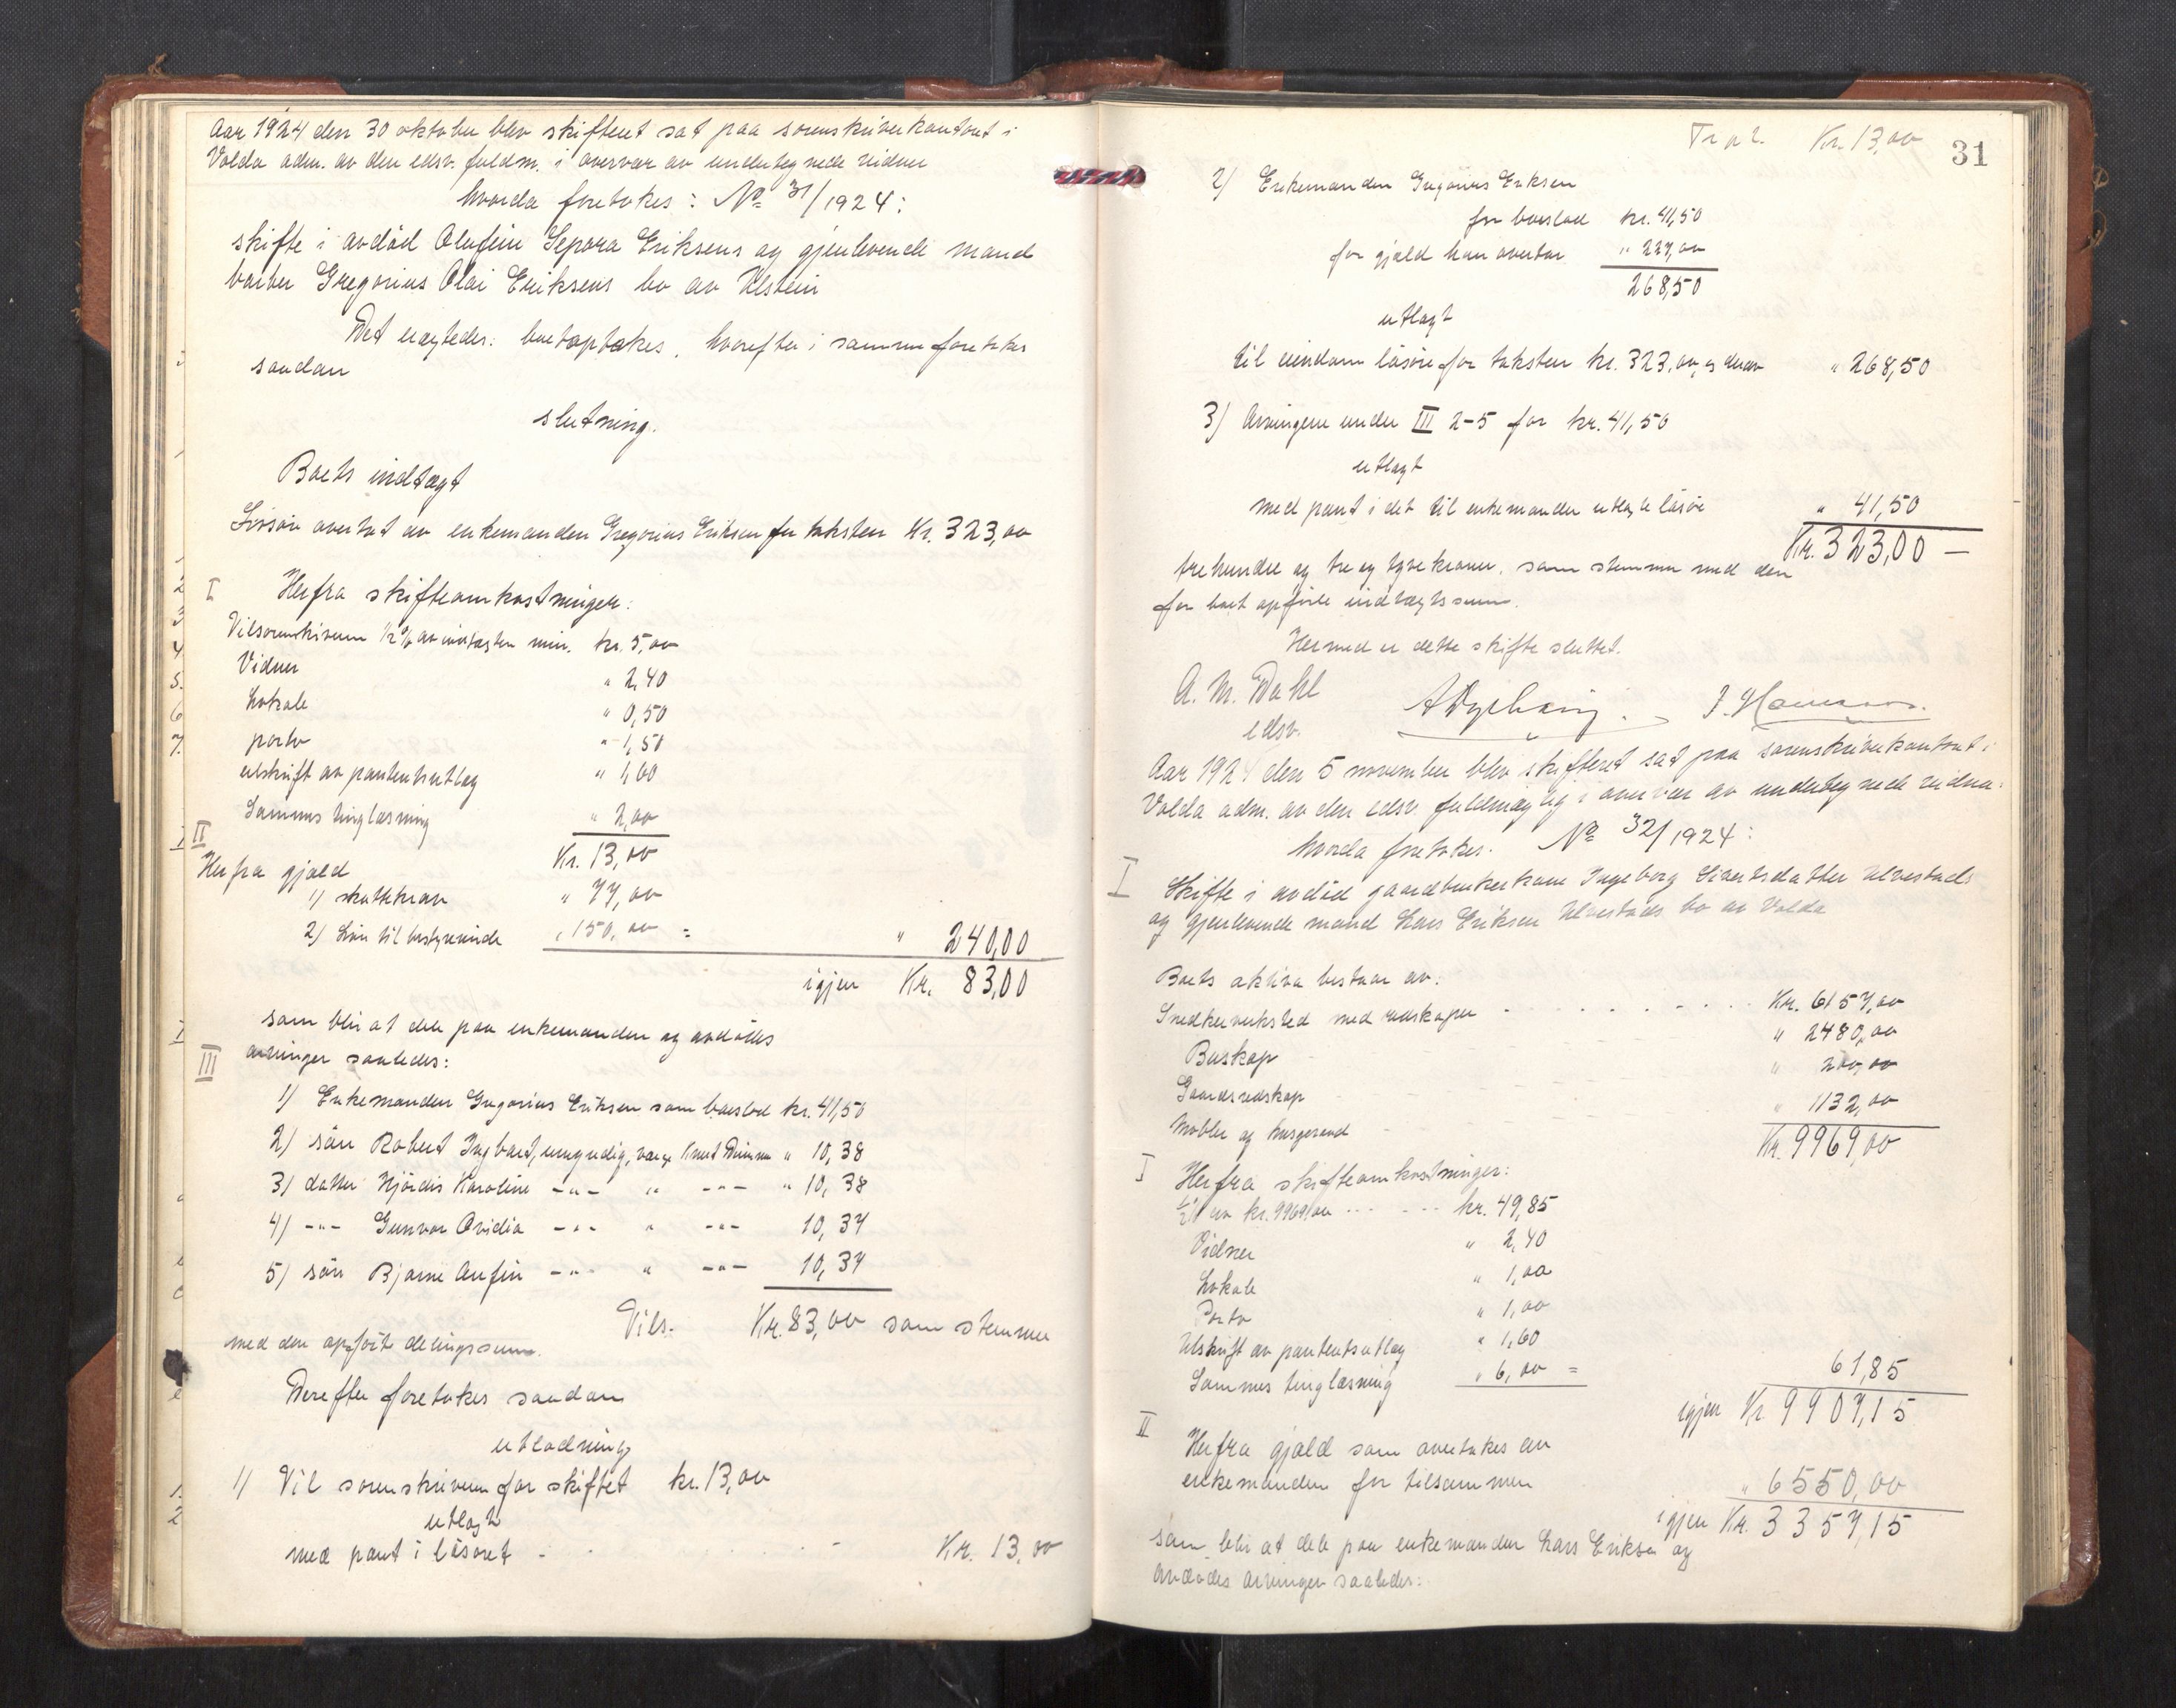 Aar 1924 den 30 oktober blev skifteret sat paa sorenskriverkontoret i
Volda adm. av den edsv. fuldm. i overvær av undertegnede vidner
hvorda foretokes: No 31/1924:
skifte i avdød Olufine Sepora Eriksens og gjenlevende mand
barber Gregorius Olai Eriksens bo av Ulstein
Det vegtedes: boet optokes, hvorefter i samme foretokes
saadan
slutning.
Boets indtægt
Løsøre overtat av enkemanden Gregorius Eriksen for taksten Kr. 323,00
I Herfra skifteomkostninger:
Til sorenskriveren 1/2 % av indtægten min. kr. 5,00
Vidner " 2,40
Lokale " 0,50
porto " 1,50
utskrift av panteutlæg " 1,60
Sammes tinglæsning " 2,00
Kr. 13,00
II
Herfra gjæld
1) skattekrav " 77,00
2) Løn til bestyrerinde " 150,00 = " 240,00
igjen Kr. 83,00
som blir at dele paa enkemanden og avdødes
III arvinger saaledes:
1) Enkemanden Gregorius Eriksen som boeslod kr. 41,50
2) søn Robert Ingbart, umyndig, verge Knut Dimmen " 10,38
3) datter Hjørdis Karoline -"- " -"- " 10,38
4) -"- Gunvor Ovidia -"- " -"- 10,37
5) søn Bjarne Anfin -"- " -"- 10,37
Tils. Kr. 83,00 som stemmer
med den opførte delingssum.
Derefter foretokes saadan
utlodning
1) Til sorenskriveren for skiftet kr. 13,00
utlagt
med pant i løsøret - - Kr. 13,00
Trp 2. Kr. 13,00
31
2) Enkemanden Gregorius Eriksen
for boeslod kr. 41,50
for gjæld han overtar " 227,00
268,50
utlagt
til eiendom løsøre for taksten kr. 323,00, er derav " 268,50
3) Arvingene under III 2-5 for kr. 41,50
utlagt
med pant i det til enkemanden utlagte løsøre " 41,50
Kr. 323,00 —
trehundre og tre og tyve kroner, som stemmer med den
for boet opførte indtægtssum.
Hermed er dette skifte sluttet.
A. M. Dahl
edsv.
Aar 1924 den 5 november blev skifteret sat paa sorenskriverkontoret i
Volda adm. av den edsv. fuldmægtig i overvær av undertegnede vidner:
hvorda foretokes. No 32/1924:
I Skifte i avdød gaardbrukerkone Ingeborg Sivertsdatter Ulvestads
og gjenlevende mand Lars Eriksen Ulvestads bo av Volda
Boets aktiva bestaar av:
Snedkerverksted med redskaper . . . . . . . Kr. 6157,00
Buskap " 2480,00
Gaardsredskap " 200,00
Møbler og husgeraad " 1132,00
Kr. 9969,00
I Herfra skifteomkostninger:
1/2 % av kr. 9969,00 ... kr. 49,85
Vidner " 2,40
Lokale " 1,00
Porto " 1,00
Utskrift av panteutlæg " 1,60
Sammes tinglæsning " 6,00 = 61,85
igjen Kr 9907,15
II
Herfra gjæld som overtakes av
enkemanden for tilsammen " 6550,00
igjen Kr. 3357,15
som blir at dele paa enkemanden Lars Eriksen og
avdødes arvinger saaledes: